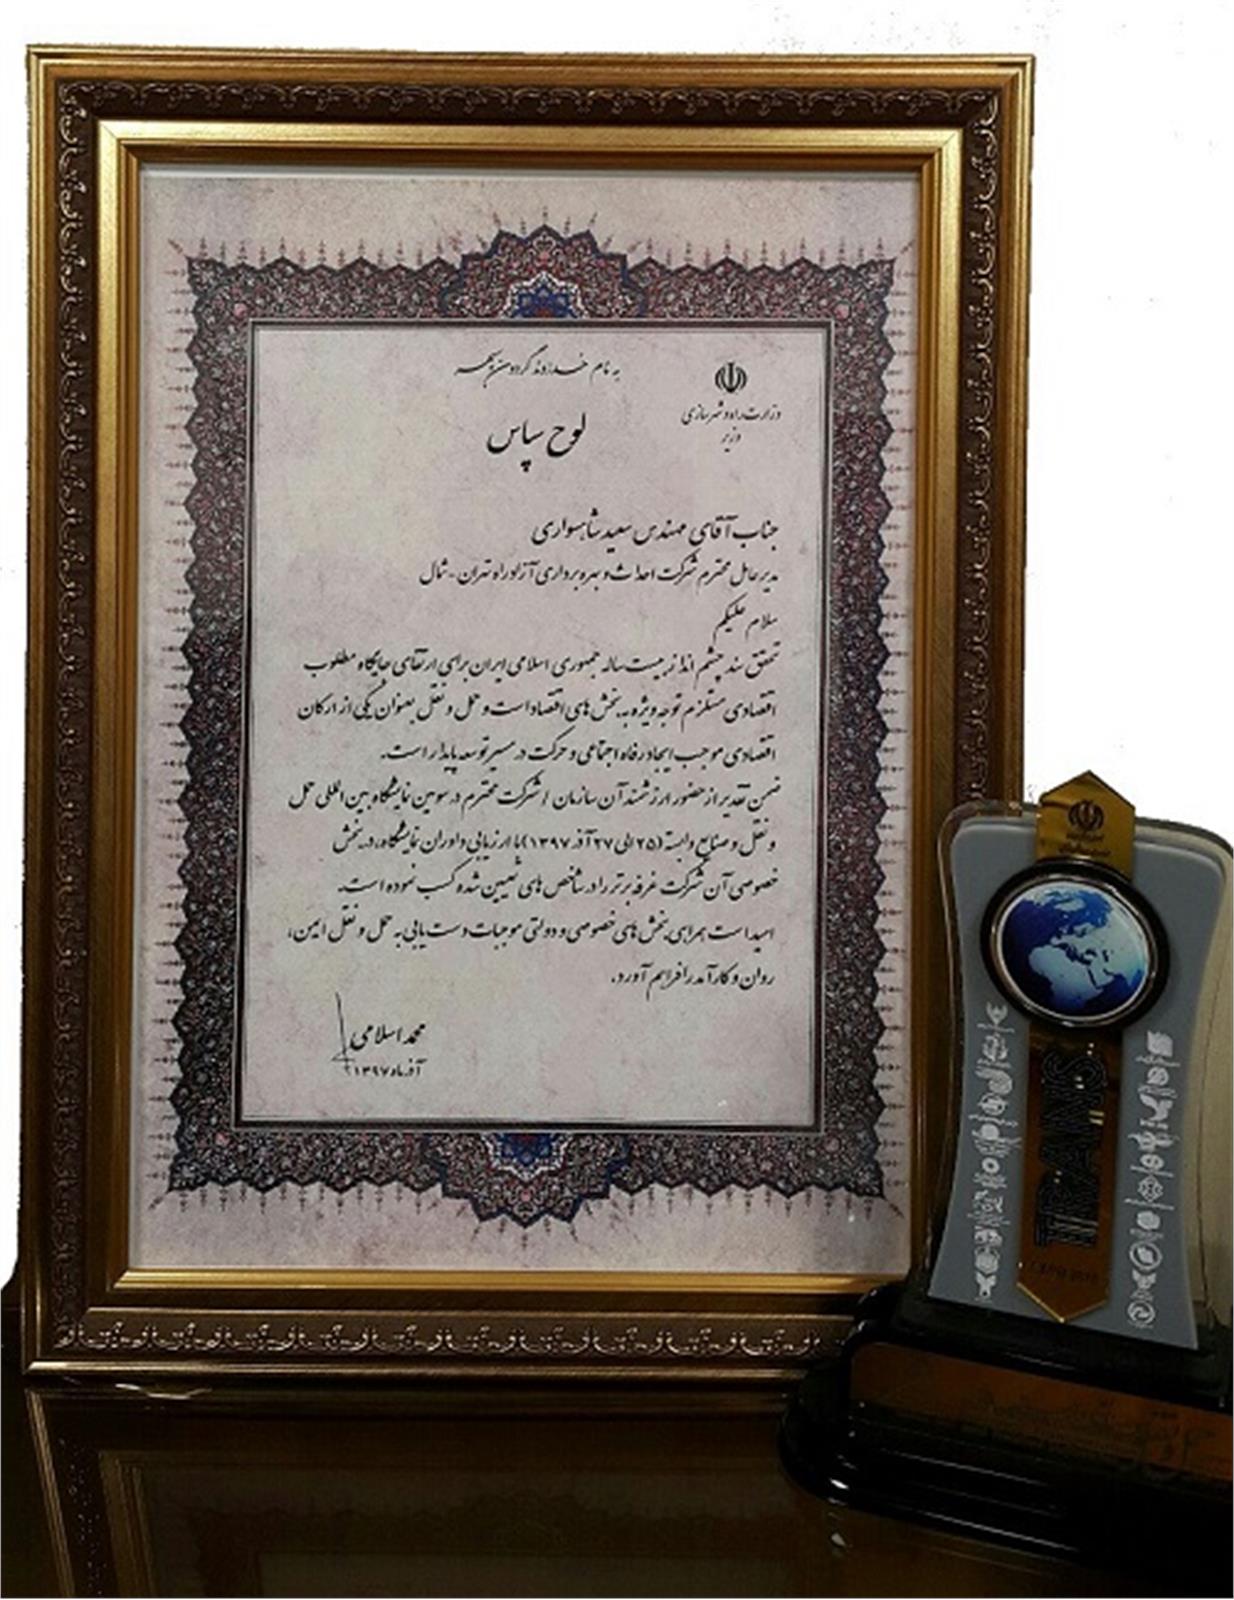 به نام خداوند گردون سپهر
وزارت راه و شهرسازی
وزیر
لوح سپاس
جناب آقای مهندس سعید شاهسواری
مدیر عامل محترم شرکت احداث و بهره برداری آزادراه تهران - شمال
سلام علیکم
تحقق سند چشم انداز بیست ساله جمهوری اسلامی ایران برای ارتقای جایگاه مطلوب
اقتصادی مستلزم توجه ویژه به بخش های اقتصاد است و حمل و نقل بعنوان یکی از ارکان
اقتصادی موجب ایجاد رفاه اجتماعی و حرکت در مسیر توسعه پایدار است.
ضمن تقدیر از حضور ارزشمند آن سازمان / شرکت محترم در سومین نمایشگاه بین المللی حمل
و نقل و صنایع وابسته (۲۵ الی ۲۷ آذر ۱۳۹۷) با ارزیابی داوران نمایشگاه، در بخش
خصوصی آن شرکت غرفه برتر را در شاخص های تعیین شده کسب نموده است.
امید است همراهی بخش های خصوصی و دولتی موجبات دست یابی به حمل و نقل ایمن،
روان و کارآمد را فراهم آورد.
محمد اسلامی
آذر ماه ۱۳۹۷
TRANS